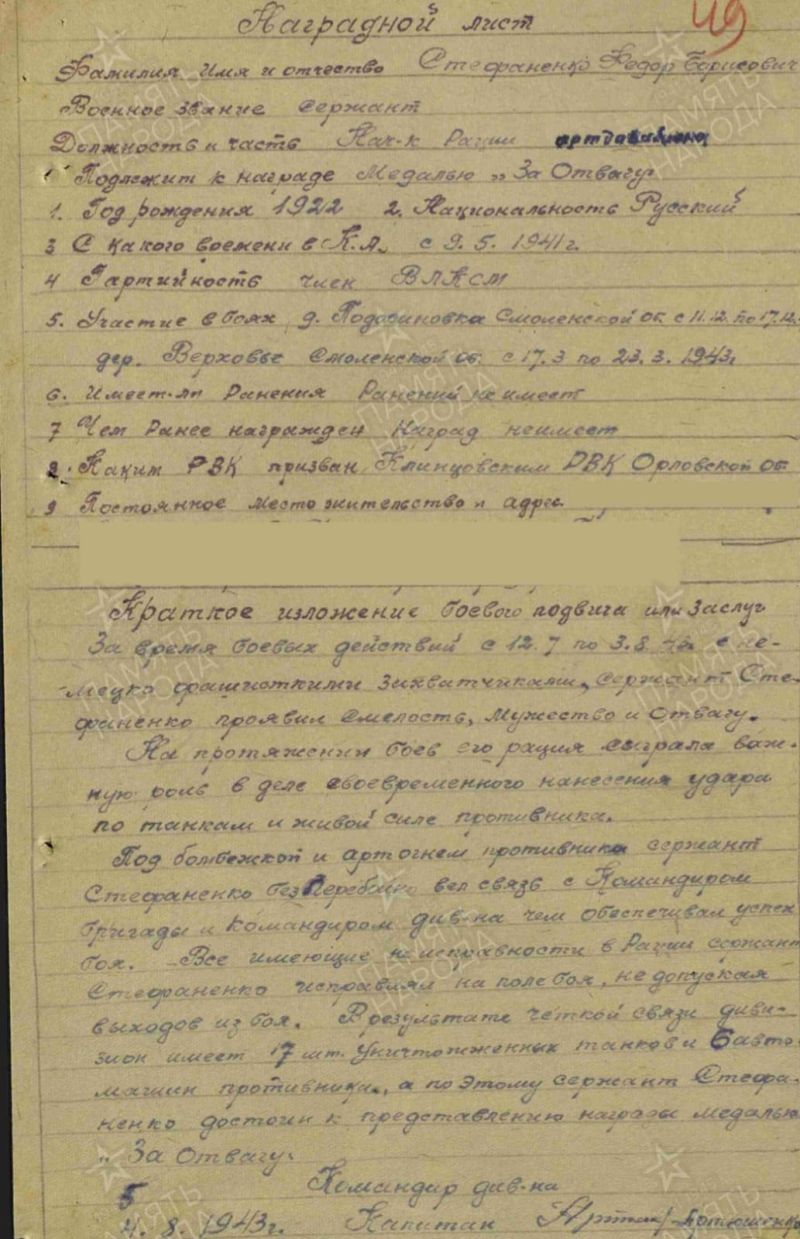 49
Наградной лист
Фамилия Имя и отчество Стефаненко Федор Борисович
Военное звание сержант
Должность и часть Нач-к Рации артдивизиона
Подлежит к награде Медалью „За Отвагу"
1. Год рождения 1922 2. Национальность Русский
3 С какого времени в К.А. с 9.5.1941г.
4 Партийность член ВЛКСМ
5. Участие в боях д. Подосиновка Смоленской об с 11.12 по 17.12.
дер. Верховье Смоленской об. с 17.3 по 23.3.1943г.
6. Имеет-ли Ранения Ранений не имеет
7 Чем Ранее награжден Наград неимеет
8. Каким РВК призван Клинцовским РВК Орловской об
9 Постоянное место жительство и адрес
Краткое изложение боевого подвига или заслуг
За время боевых действий с 12.7 по 3.8 с не-
мецко фашисткими захватчиками, сержант Сте-
фаненко проявил Смелость, Мужество и Отвагу.
На протяжении боев его рация сыграла важ-
ную роль в деле своевременного нанесения удара
по танкам и живой силе противника.
Под бомбежкой и артогнем противника сержант
Стефаненко безперебойно вел связь с Командиром
бригады и Командиром див-на чем обеспечивал успех
боя. Все имеющие неисправности в Рации сержант
Стефаненко исправлял на поле боя, не допуская
выходов из боя. В результате четкой связи диви-
зион имеет 17 шт. уничтоженных танков и 6 авто
машин противника, а по этому сержант Стефа-
ненко достоин к представлению награды медалью
„За Отвагу.
Командир див-на
5
4.8.1943г. Капитан Артюшенко
ПАМЯТЬ НАРОДА